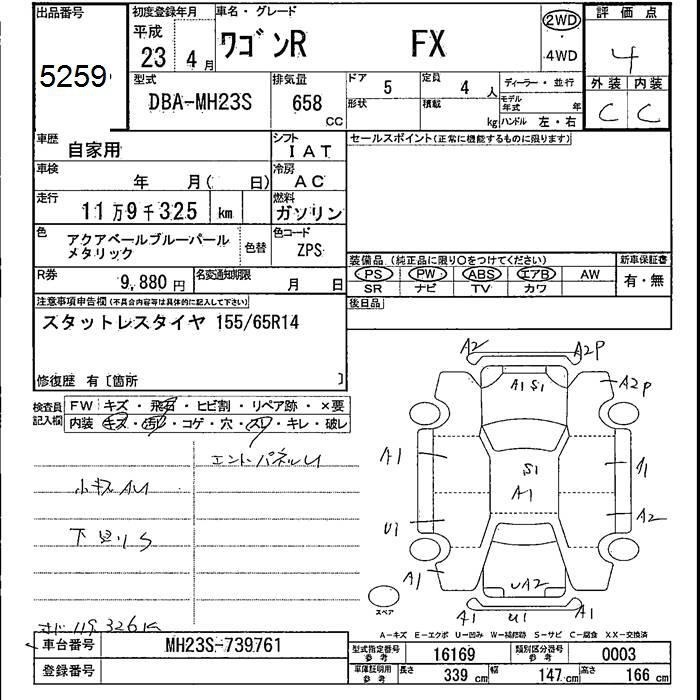 出品番号
5259
初度登録年月
平成
23 4月
車名・グレード
ワゴンR FX
2WD
4WD
評価点
4
外装 内装
C C
型式
DBA-MH23S
排気量
658
CC
ドア 5
定員 4 人
形状
積載 kg
ディーラー・並行
モデル年式 年
ハンドル 左・右
車歴 自家用
シフト IAT
車検 年 月( 日)
冷房 AC
走行 11万9千325 km
燃料 ガソリン
色 アクアベールブルーパール
メタリック
色替
色コード ZPS
R券 9,880円
名変通知期限 月 日
セールスポイント(正常に機能するものに限ります)
装備品 (純正品に限り○をつけてください)
PS PW ABS エアB AW
SR ナビ TV カワ
新車保証書
有・無
後日品
注意事項申告欄(不具合内容等は具体的に記入して下さい)
スタットレスタイヤ 155/65R14
修復歴 有〔箇所 〕
検査員記入欄
FW キズ・飛石・ヒビ割・リペア跡・×要
内装・キズ・汚レ・コゲ・穴・スレ・キレ・破レ
小キズAU
A2 A2P
A1 S1
A2P
A1
S1
A1
A1
U1
A2
A1
UA2
A1 U1 A1
スペア
A－キズ E－エクボ U－凹み W－補修跡 S－サビ C－腐食 XX－交換済
119326K
車台番号 MH23S-739761
登録番号
型式指定番号 参考 16169
類別区分番号 参考 0003
車庫証明用 参考 長さ 339 cm 幅 147 cm 高さ 166 cm